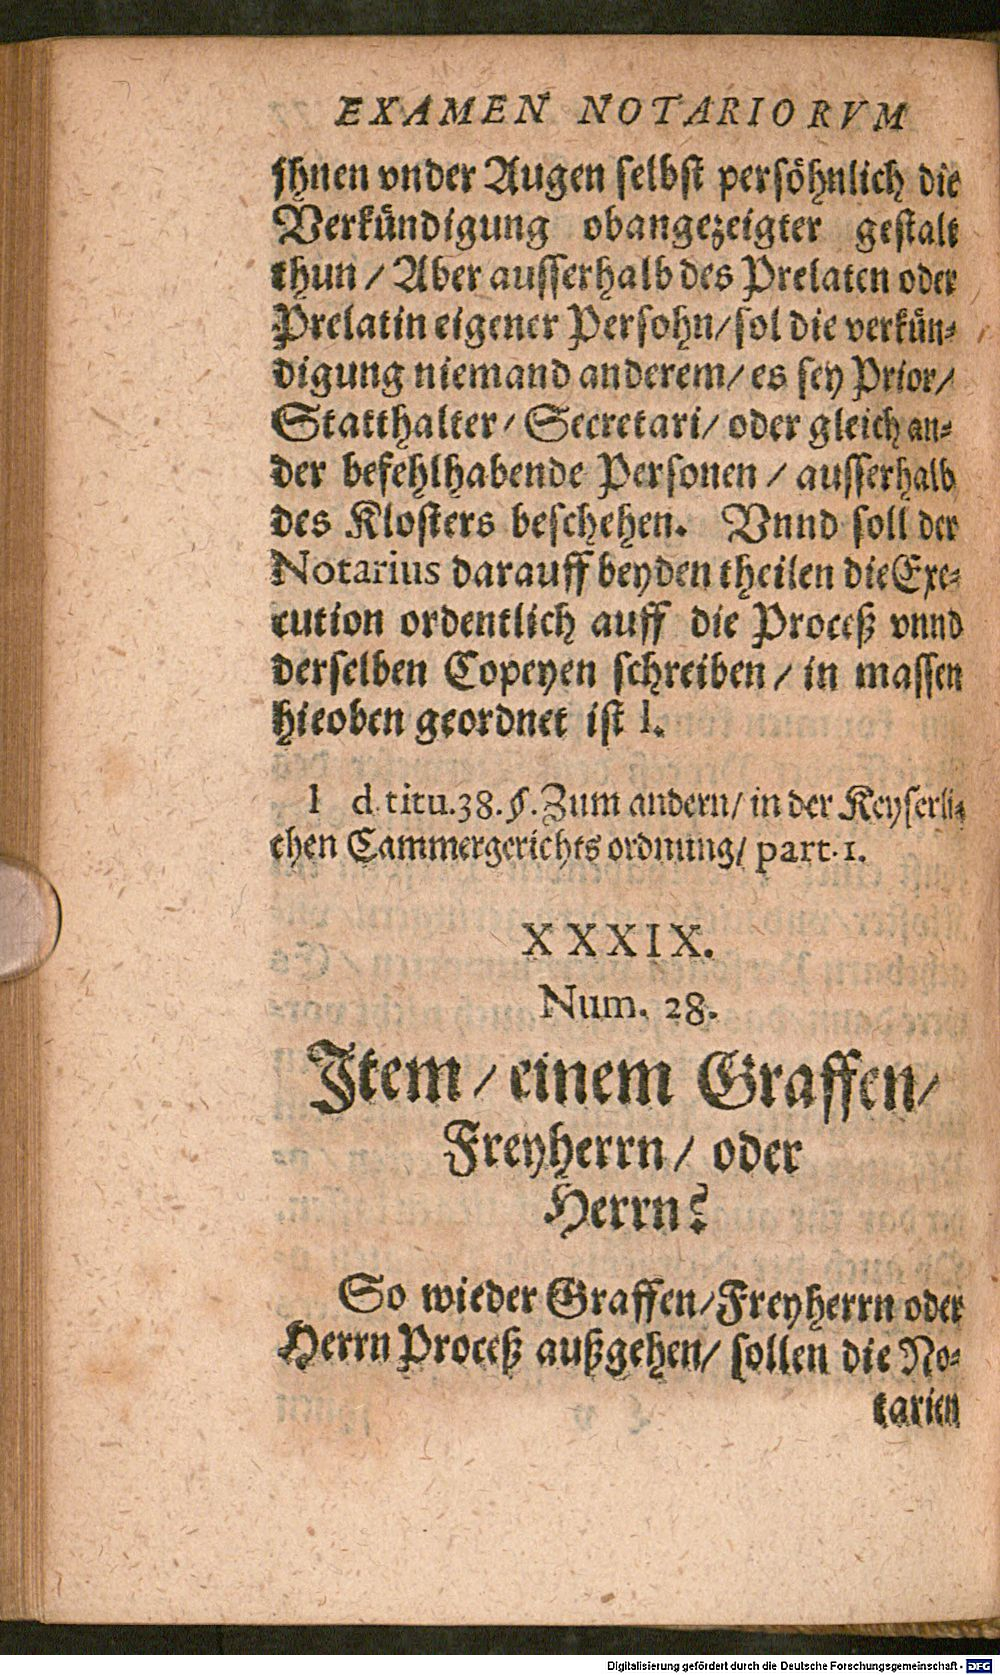 EXAMEN NOTARIORVM
jhnen vnder Augen selbst persöhnlich die
Verkündigung obangezeigter gestalt
thun / Aber ausserhalb des Prelaten oder
Prelatin eigener Persohn/ sol die verkün-
digung niemand anderem/ es sey Prior/
Statthalter/ Secretari/ oder gleich an-
der befehlhabende Personen / ausserhalb
des Klosters beschehen. Vnnd soll der
Notarius darauff beyden theilen die Exe-
cution ordentlich auff die Proceß vnnd
derselben Copeyen schreiben / in massen
hieoben geordnet ist l.
l d. titu. 38. §. Zum andern/ in der Keyserli-
chen Cammergerichts ordnung/ part. 1.
XXXIX.
Num. 28.
Jtem / einem Graffen/
Freyherrn / oder
Herrn?
So wieder Graffen/ Freyherrn oder
Herrn Proceß außgehen/ sollen die No-
tarien
Digitalisierung gefördert durch die Deutsche Forschungsgemeinschaft - DFG